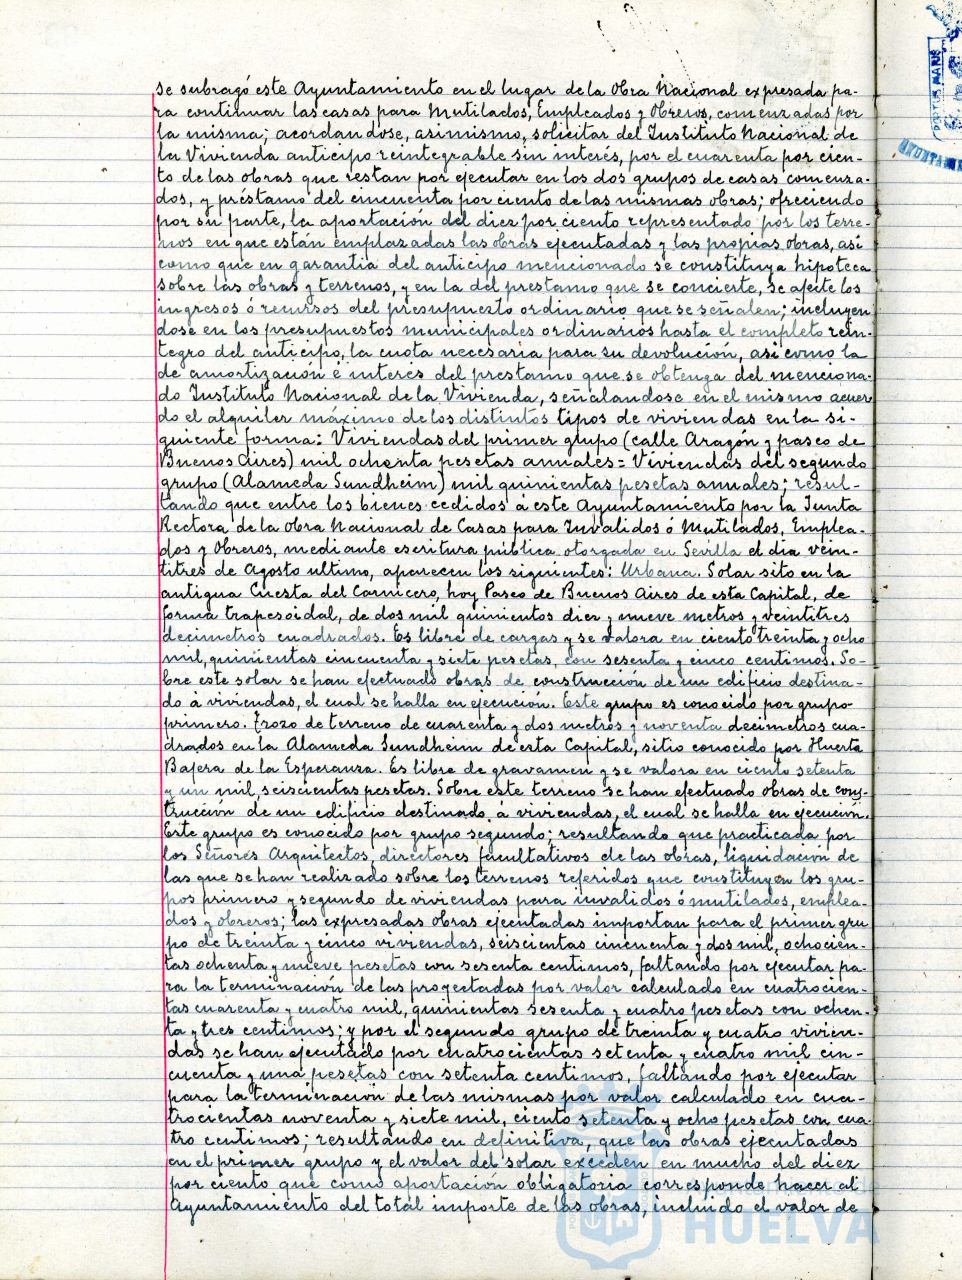 se subrogó este Ayuntamiento en el lugar de la Obra Nacional expresada pa-
ra continuar las casas para Mutilados, Empleados y Obreros, comenzadas por
la misma; acordandose, asimismo, solicitar del Instituto Nacional de
la Vivienda anticipo reintegrable sin interés, por el cuarenta por cien-
to de las obras que restan por ejecutar en los dos grupos de casas comenza-
dos, y préstamo del cincuenta por ciento de las mismas obras; ofreciendo
por su parte, la aportación del diez por ciento representado por los terre-
nos en que están emplazadas las obras ejecutadas y las propias obras, asi
como que en garantia del anticipo mencionado se constituya hipoteca
sobre las obras y terrenos, y en la del prestamo que se concierte, se afecte los
ingresos ó recursos del presupuesto ordinario que se señalen; incluyen
dose en los presupuestos municipales ordinarios hasta el completo rein-
tegro del anticipo, la cuota necesaria para su devolución, asi como la
de amortización é interés del prestamo que se obtenga del menciona-
do Instituto Nacional de la Vivienda, señalandose en el mismo acuer
do el alquiler máximo de los distintos tipos de viviendas en la si-
guiente forma: Viviendas del primer grupo (calle Aragón y paseo de
Buenos Aires) mil ochenta pesetas anuales = Viviendas del segundo
grupo (Alameda Sundheim) mil quinientas pesetas anuales; resul-
tando que entre los bienes cedidos á este Ayuntamiento por la Junta
Rectora de la Obra Nacional de Casas para Invalidos ó Mutilados, Emplea-
dos y Obreros, mediante escritura pública otorgada en Sevilla el dia vein-
titres de Agosto ultimo, aparecen los siguientes: Urbana. Solar sito en la
antigua Cuesta del Carnicero, hoy Paseo de Buenos Aires de esta Capital, de
forma trapesoidal, de dos mil quinientos diez y nueve metros y veintitres
decimetros cuadrados. Es libre de cargas y se valora en ciento treinta y ocho
mil, quinientas cincuenta y siete pesetas, con sesenta y cinco centimos. So-
bre este solar se han efectuado obras de construcción de un edificio destina-
do á viviendas, el cual se halla en ejecución. Este grupo es conocido por grupo
primero. Trozo de terreno de cuarenta y dos metros y noventa decimetros cua-
drados en la Alameda Sundheim de esta Capital, sitio conocido por Huerta
Bajera de la Esperanza. Es libre de gravamen y se valora en ciento setenta
y un mil, seiscientas pesetas. Sobre este terreno se han efectuado obras de cons-
trucción de un edificio destinado á viviendas, el cual se halla en ejecución.
Este grupo es conocido por grupo segundo; resultando que practicada por
los Señores Arquitectos, directores facultativos de las obras, liquidación de
las que se han realizado sobre los terrenos referidos que constituyen los gru-
pos primero y segundo de viviendas para invalidos ó mutilados, emplea-
dos y obreros; las expresadas obras ejecutadas importan para el primer gru
po de treinta y cinco viviendas, seiscientas cincuenta y dos mil, ochocien-
tas ochenta y nueve pesetas con sesenta centimos, faltando por ejecutar pa-
ra la terminación de las proyectadas por valor calculado en cuatrocien-
tas cuarenta y cuatro mil, quinientas sesenta y cuatro pesetas con ochen-
ta y tres centimos; y por el segundo grupo de treinta y cuatro vivien-
das se han ejecutado por cuatrocientas setenta y cuatro mil cin-
cuenta y una pesetas con setenta centimos, faltando por ejecutar
para la terminación de las mismas por valor calculado en cua-
trocientas noventa y siete mil, ciento setenta y ocho pesetas con cua-
tro centimos; resultando en definitiva, que las obras ejecutadas
en el primer grupo y el valor del solar exceden en mucho del diez
por ciento que como aportación obligatoria corresponde hacer al
Ayuntamiento del total importe de las obras, incluido el valor de
HUELVA